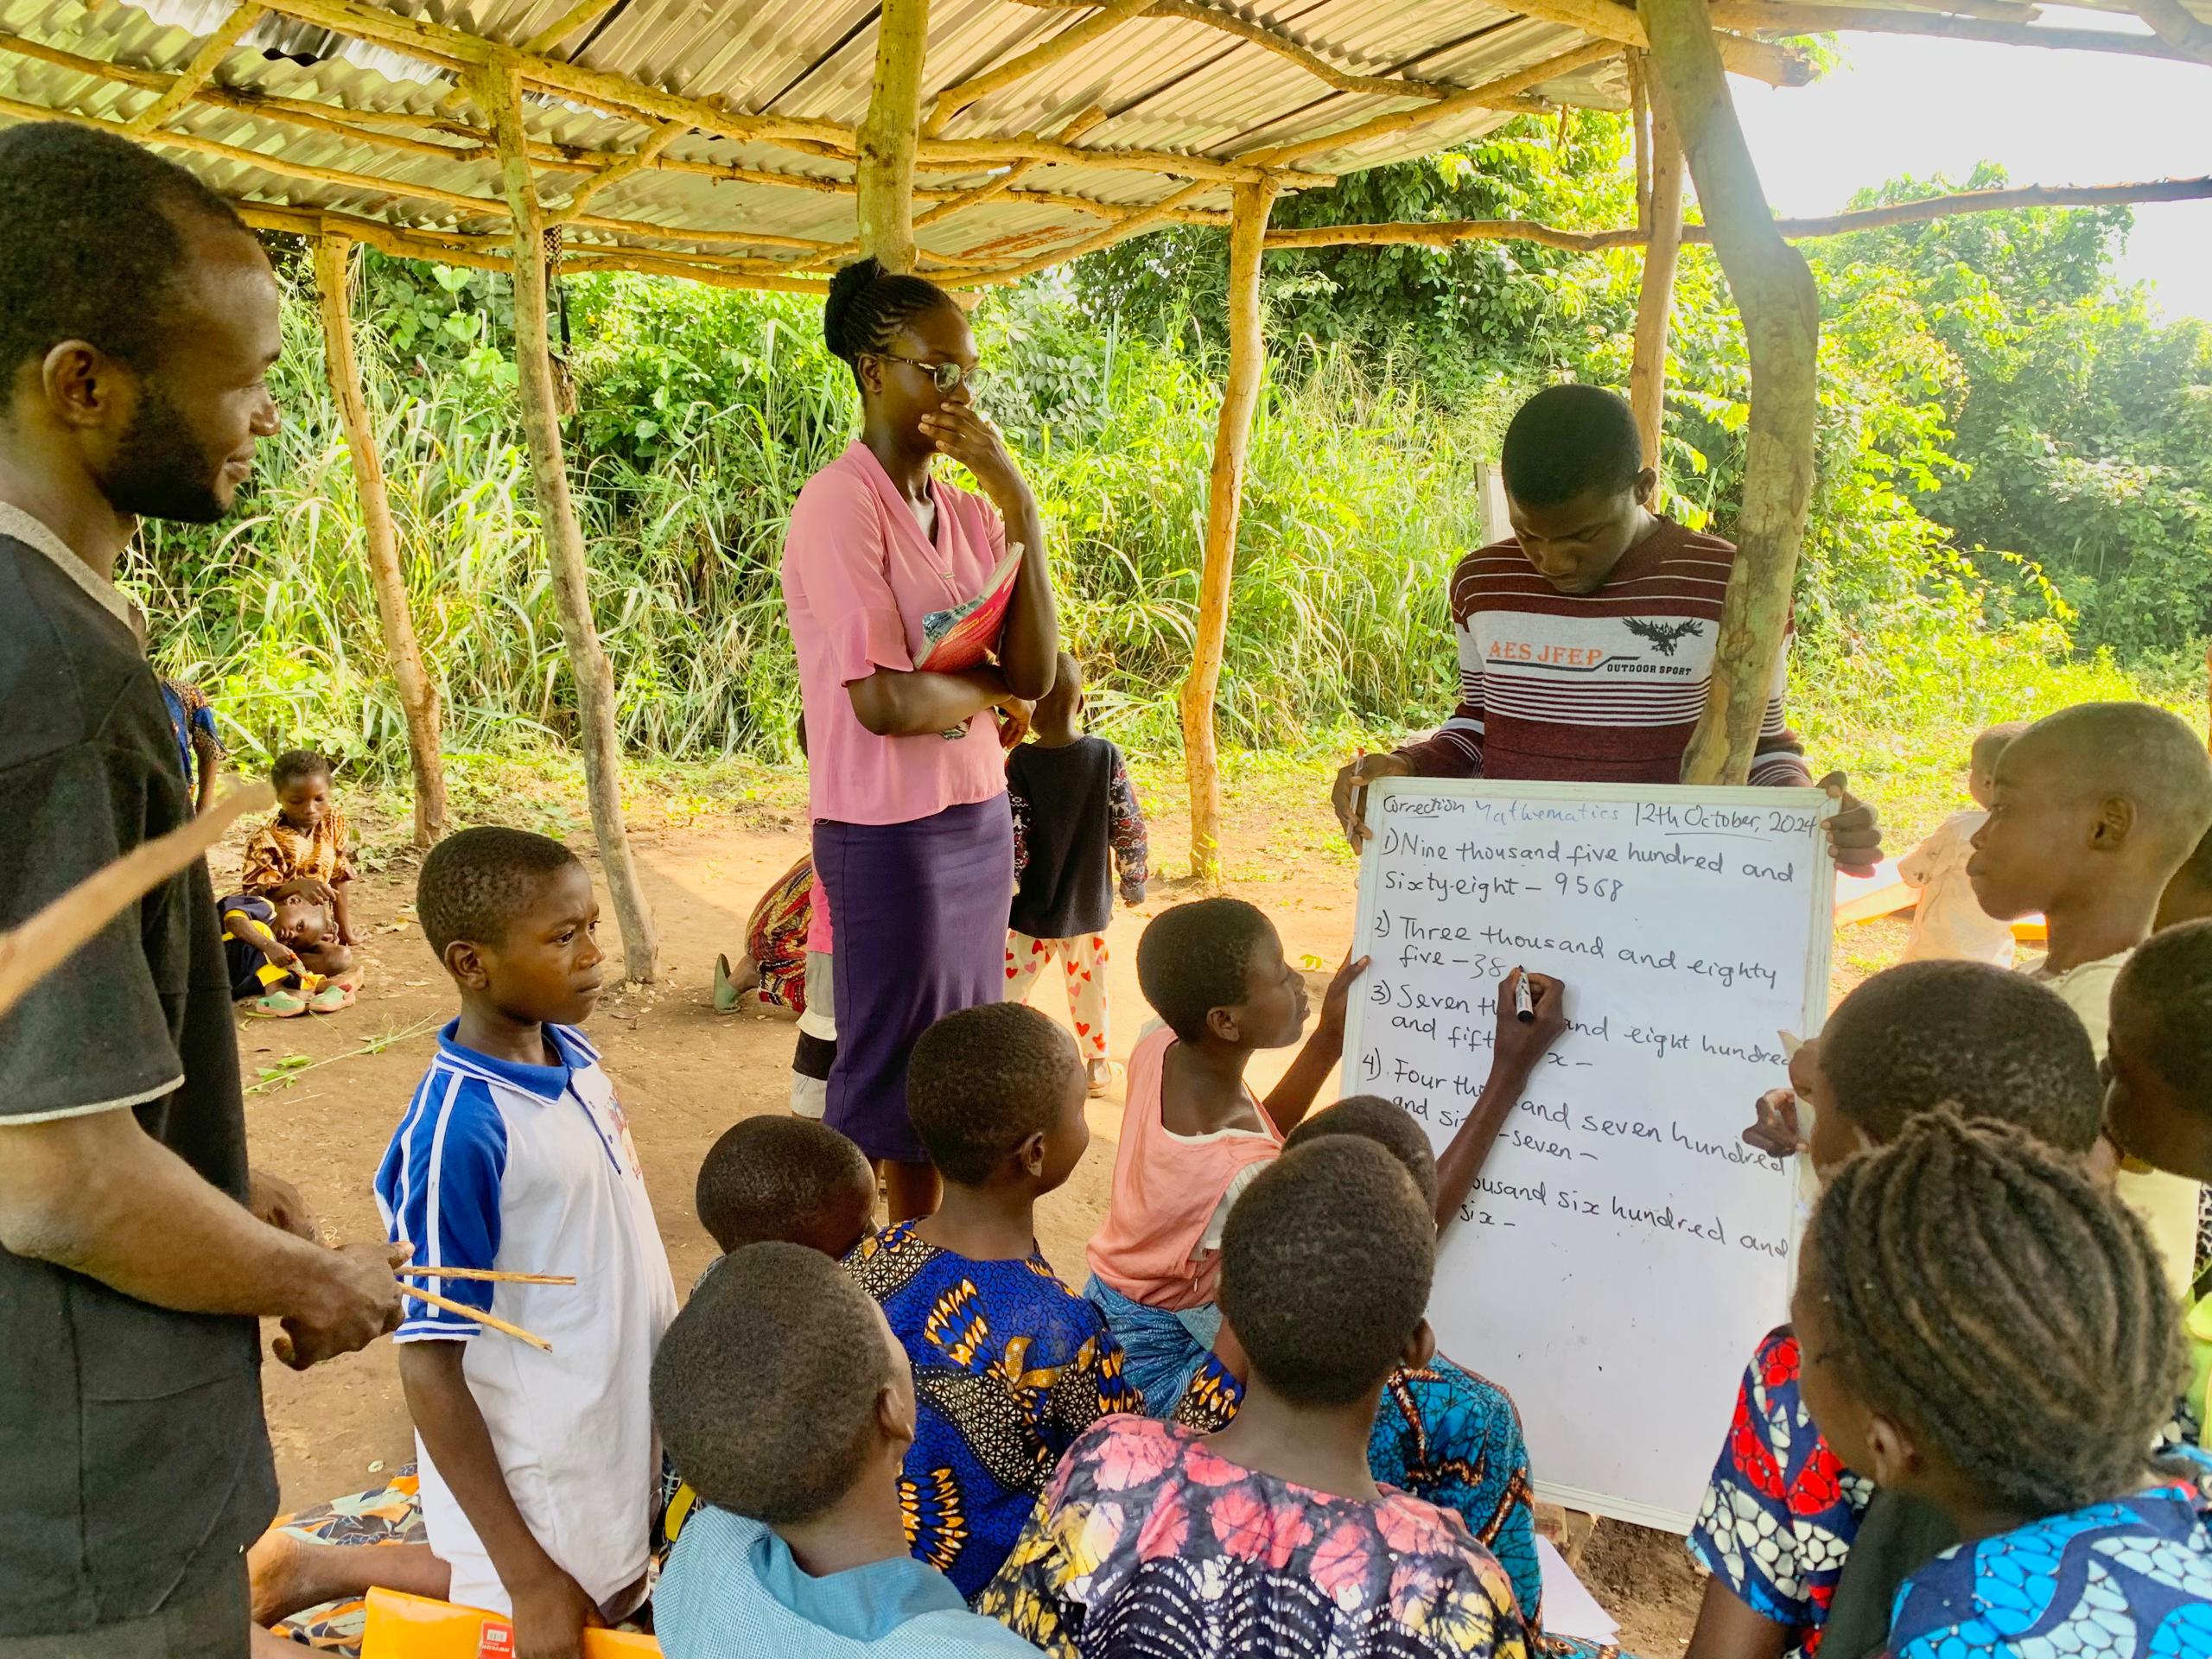 AES JFEP
OUTDOOR SPORT
Correction Mathematics 12th October, 2024
1) Nine thousand five hundred and
Sixty-eight - 9568
2) Three thousand and eighty
five - 38
3) Seven and eight hundred
and x -
4). Four and seven hundred
and -seven -
six hundred and
six -